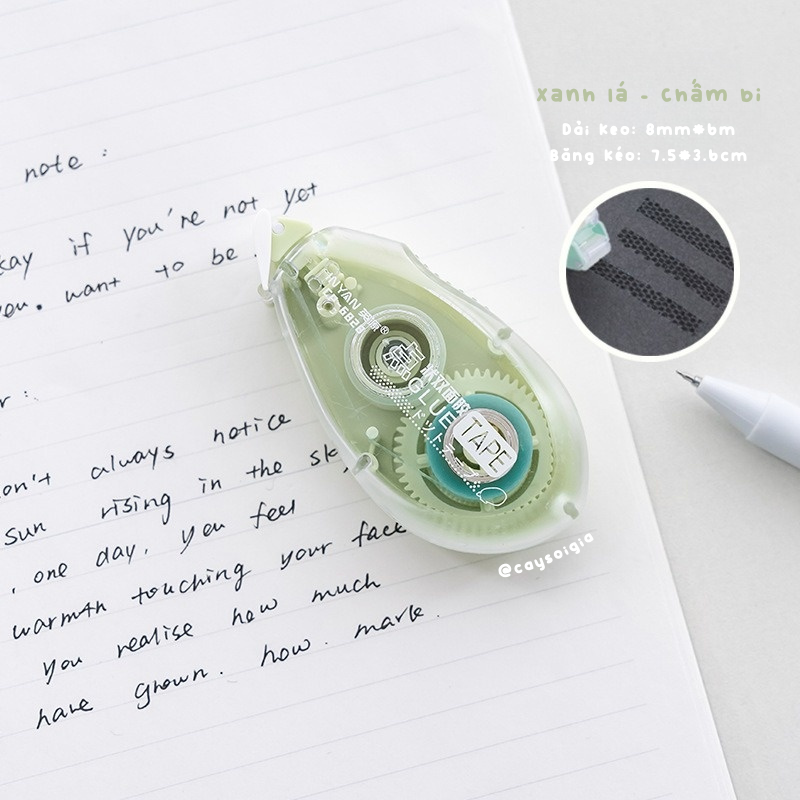 xanh lá - chấm bi
Dải keo: 8mm*6m
Băng kéo: 7.5*3.6cm
note :
kay if you're not yet
you. want to be.
r :
on't always notice
sun rising in the sky,
, one day, you feel
warmth touching your face
you realise how much
have grown. how. mark.
YAN 英雁®
6820
点点双面胶
GLUE TAPE
ドットテープ
@caysoigia